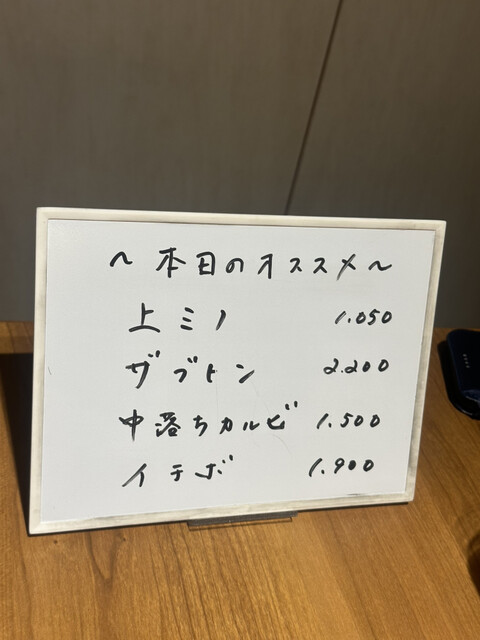 〜本日のオススメ〜
上ミノ 1.050
ザブトン 2.200
中落ちカルビ 1.500
イチボ 1.900